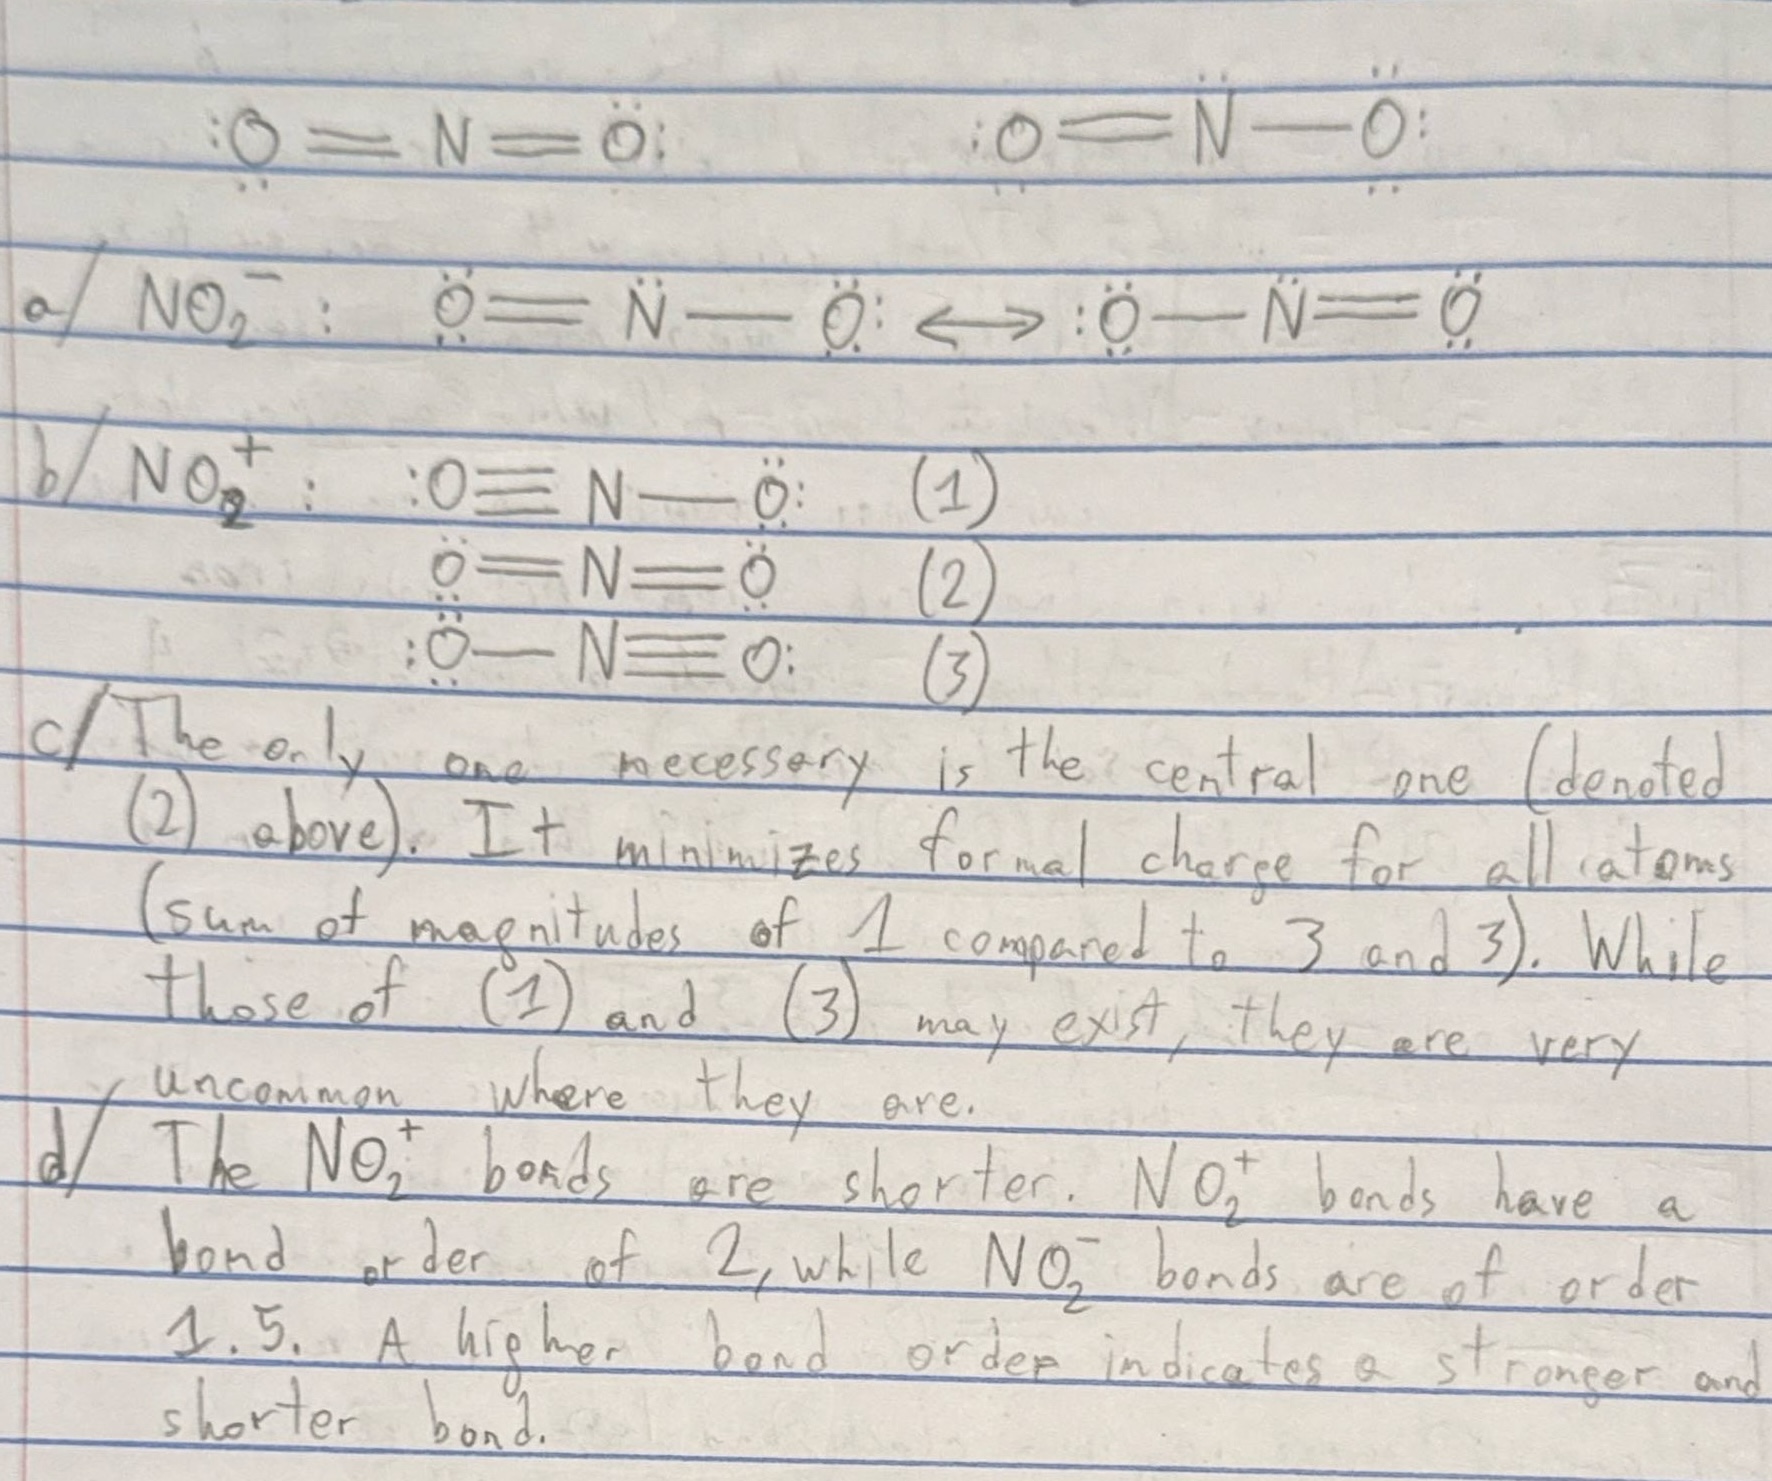 :Ö=N=Ö: :Ö=N̈-Ö:
a/ NO₂⁻ : Ö=N̈-Ö: ↔ :Ö-N̈=Ö
b/ NO₂⁺ : :O≡N-Ö: (1)
Ö=N=Ö (2)
:Ö-N≡O: (3)
c/ The only one necessary is the central one (denoted
(2) above). It minimizes formal charge for all atoms
(sum of magnitudes of 1 compared to 3 and 3). While
those of (1) and (3) may exist, they are very
uncommon where they are.
d/ The NO₂⁺ bonds are shorter. NO₂⁺ bonds have a
bond order of 2, while NO₂⁻ bonds are of order
1.5. A higher bond order indicates a stronger and
shorter bond.